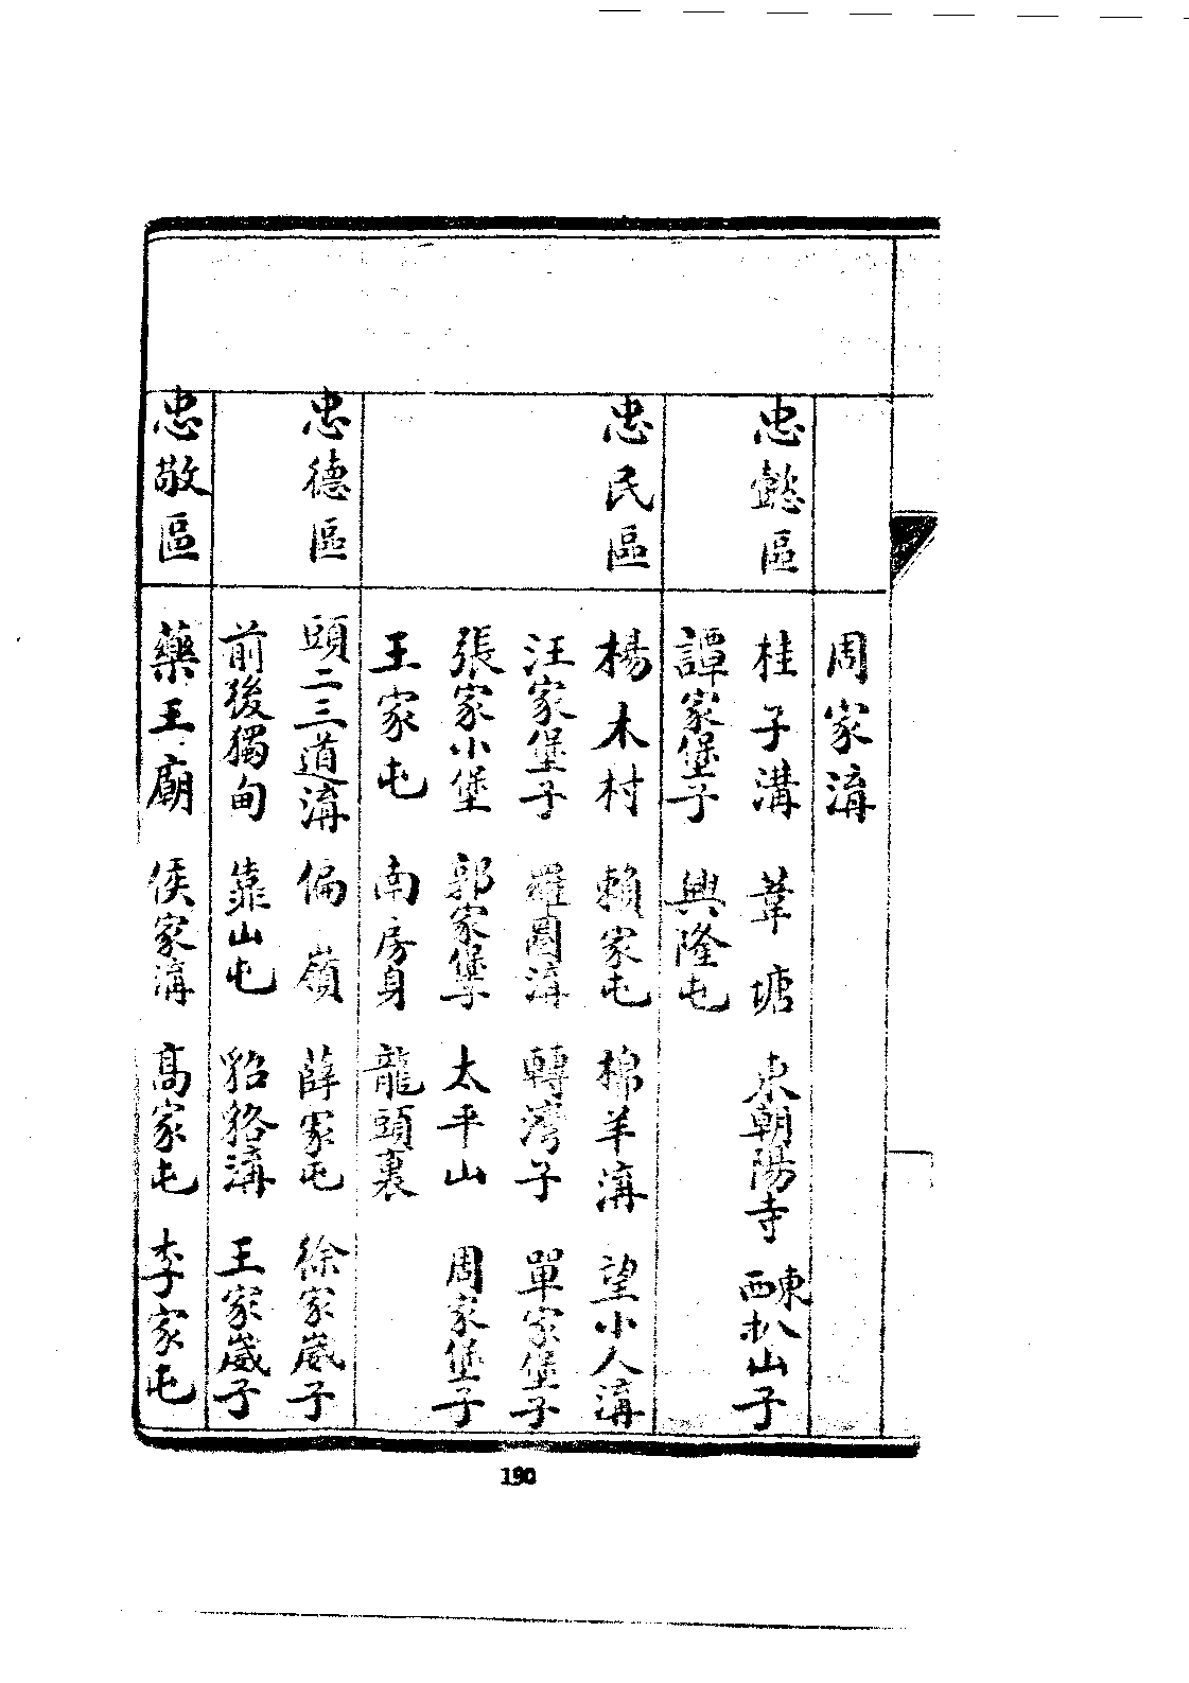 周家溝
忠懿區
桂子溝 葦塘 東朝陽寺 東西扒山子
譚家堡子 興隆屯
忠民區
楊木村 賴家屯 棉羊溝 望小人溝
汪家堡子 羅圈溝 轉灣子 單家堡子
張家小堡 郭家堡子 太平山 周家堡子
王家屯 南房身 龍頭裏
忠德區
頭二三道溝 偏嶺 薛家屯 徐家崴子
前後獨甸 靠山屯 貂狢溝 王家崴子
忠敬區
藥王廟 侯家溝 高家屯 李家屯
190